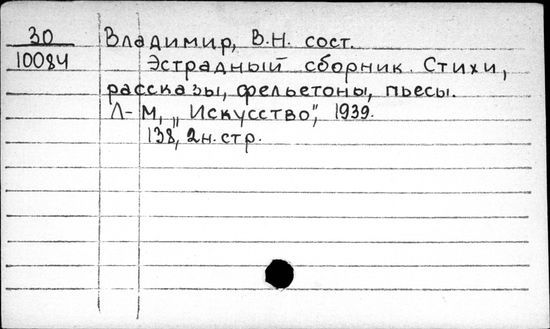 30 Владимир, В.Н. сост.
10084 Эстрадный сборник. Стихи,
рассказы, фельетоны, пьесы.
Л-М, „Искусство", 1939.
138, 2н.стр.